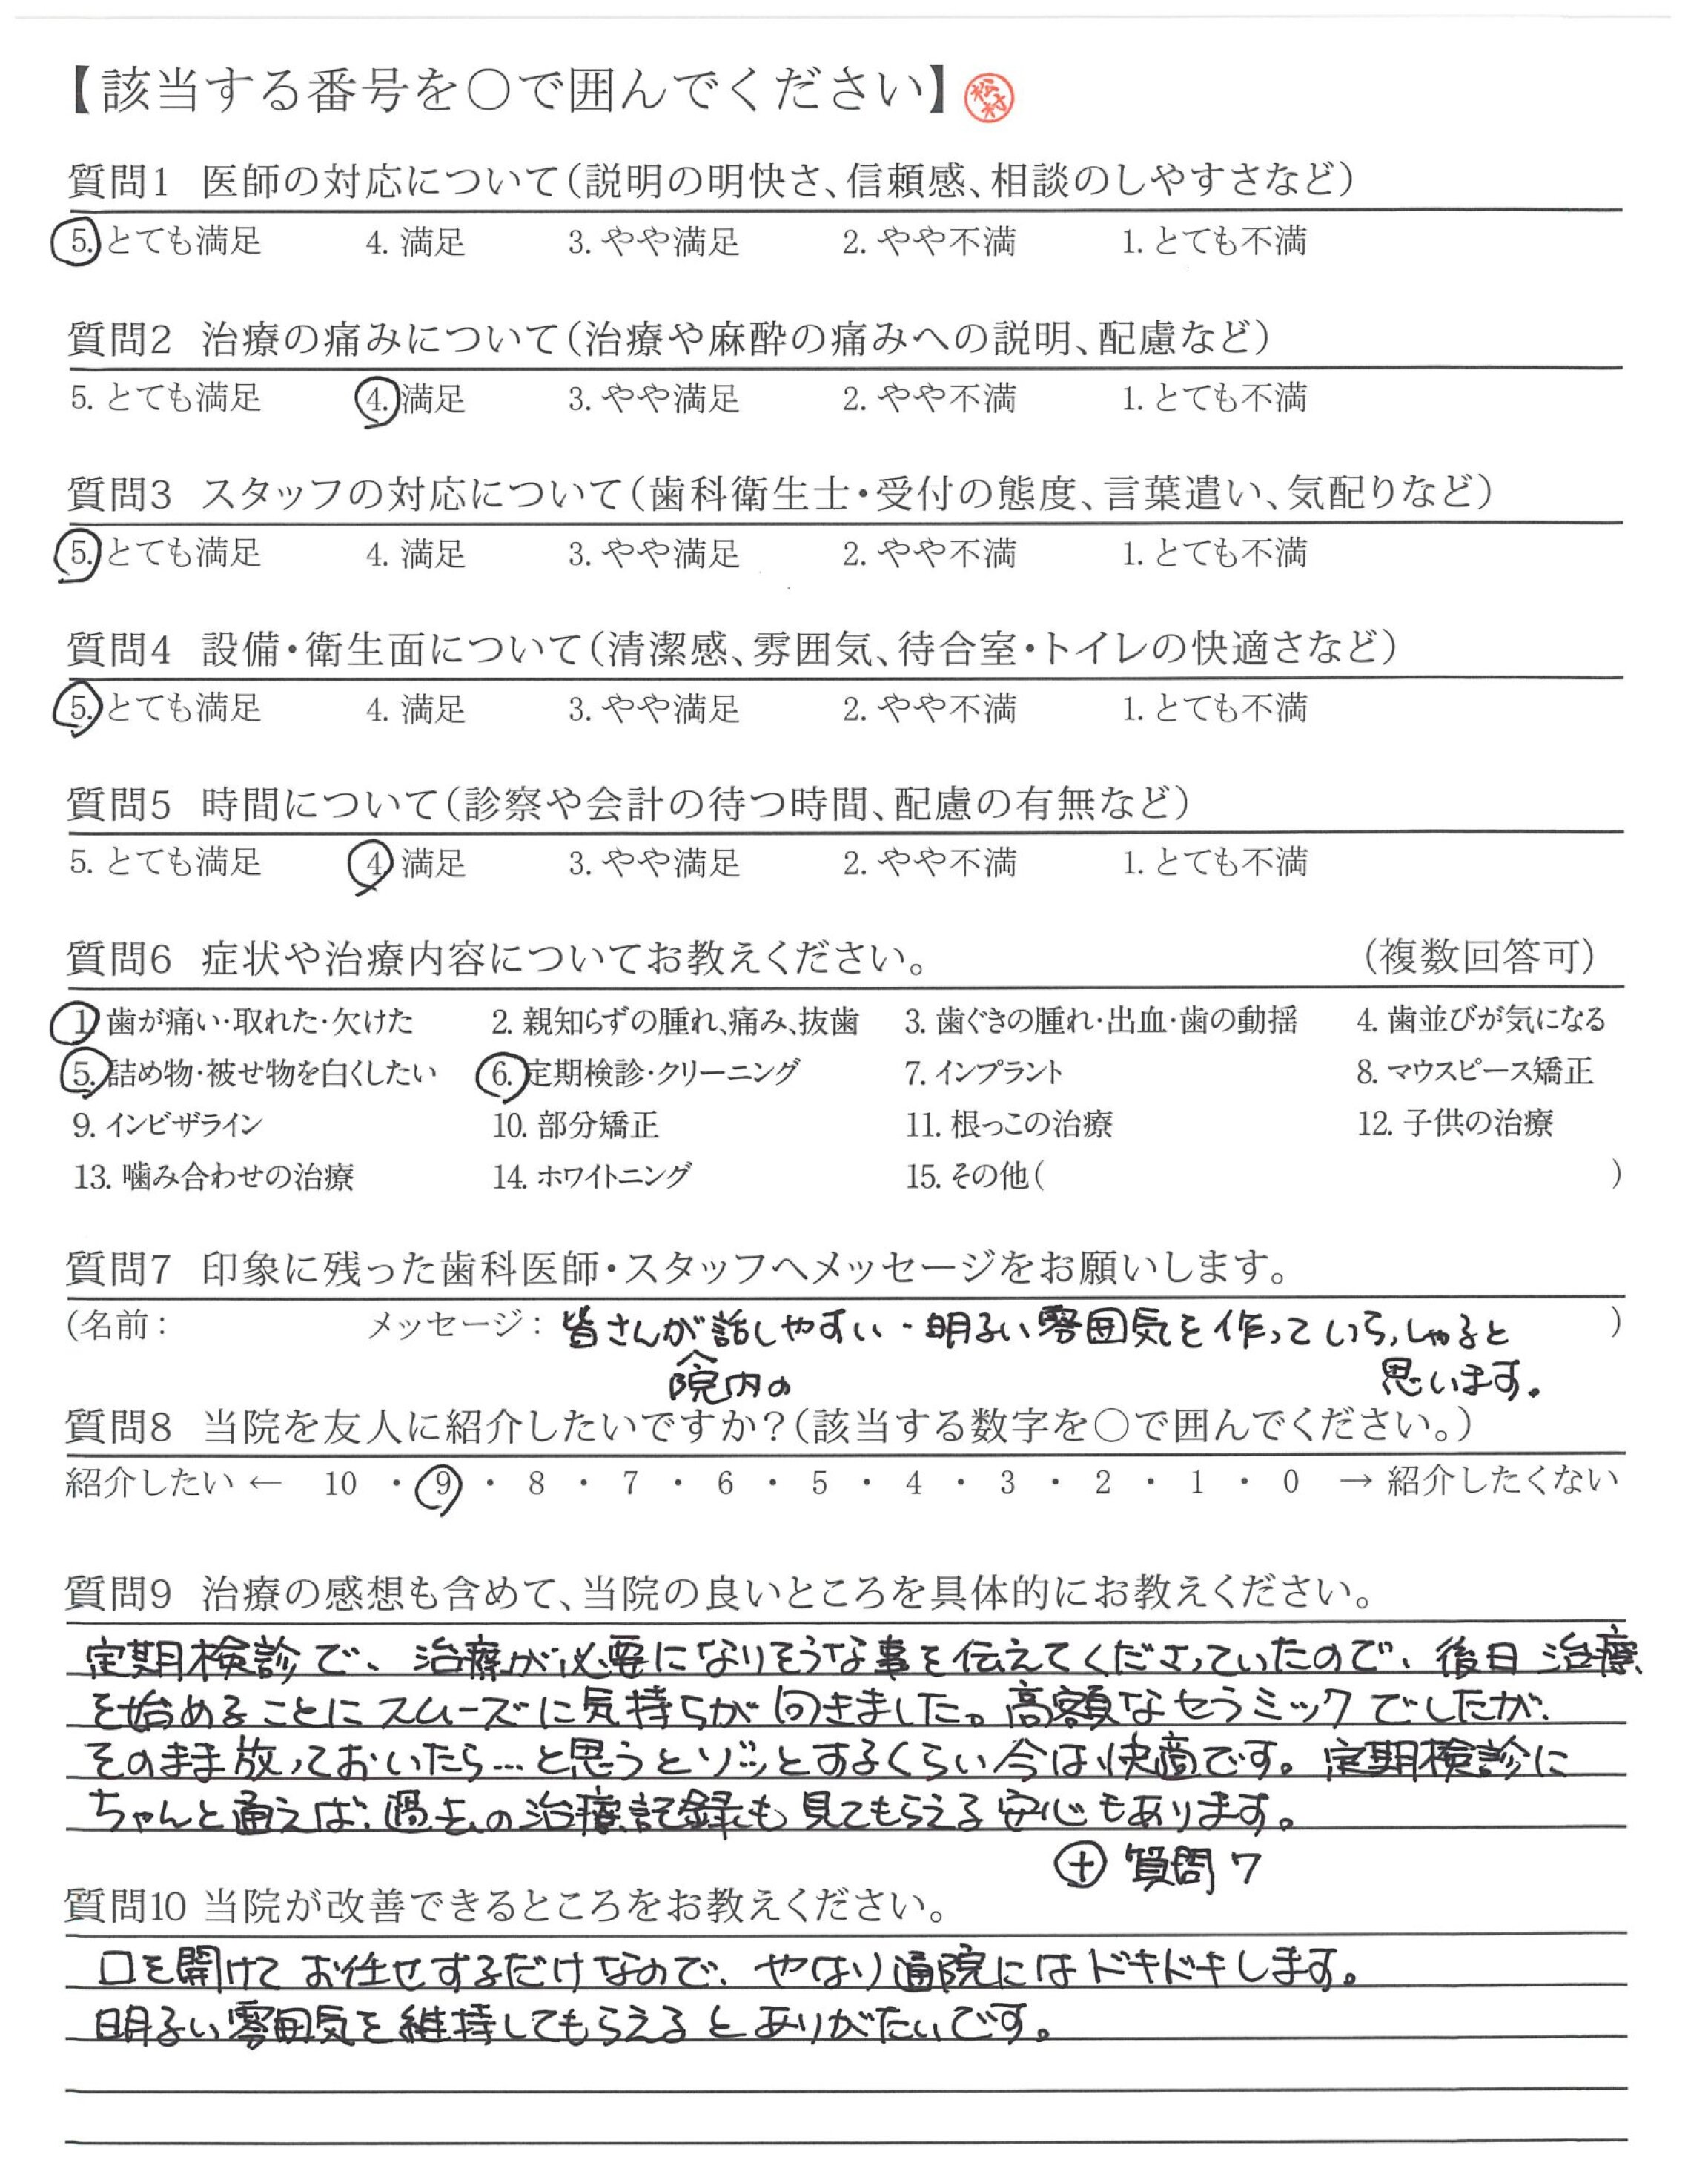 【該当する番号を○で囲んでください】 松村
質問1 医師の対応について(説明の明快さ、信頼感、相談のしやすさなど)
5. とても満足 4. 満足 3. やや満足 2. やや不満 1. とても不満
質問2 治療の痛みについて(治療や麻酔の痛みへの説明、配慮など)
5. とても満足 4. 満足 3. やや満足 2. やや不満 1. とても不満
質問3 スタッフの対応について(歯科衛生士・受付の態度、言葉遣い、気配りなど)
5. とても満足 4. 満足 3. やや満足 2. やや不満 1. とても不満
質問4 設備・衛生面について(清潔感、雰囲気、待合室・トイレの快適さなど)
5. とても満足 4. 満足 3. やや満足 2. やや不満 1. とても不満
質問5 時間について(診察や会計の待つ時間、配慮の有無など)
5. とても満足 4. 満足 3. やや満足 2. やや不満 1. とても不満
質問6 症状や治療内容についてお教えください。 (複数回答可)
1. 歯が痛い・取れた・欠けた 2. 親知らずの腫れ、痛み、抜歯 3. 歯ぐきの腫れ・出血・歯の動揺 4. 歯並びが気になる
5. 詰め物・被せ物を白くしたい 6. 定期検診・クリーニング 7. インプラント 8. マウスピース矯正
9. インビザライン 10. 部分矯正 11. 根っこの治療 12. 子供の治療
13. 噛み合わせの治療 14. ホワイトニング 15. その他( )
質問7 印象に残った歯科医師・スタッフへメッセージをお願いします。
(名前: メッセージ: 皆さんが話しやすい・明るい雰囲気を作っていらっしゃると )
院内の 思います。
質問8 当院を友人に紹介したいですか?(該当する数字を○で囲んでください。)
紹介したい ← 10 ・ 9 ・ 8 ・ 7 ・ 6 ・ 5 ・ 4 ・ 3 ・ 2 ・ 1 ・ 0 → 紹介したくない
質問9 治療の感想も含めて、当院の良いところを具体的にお教えください。
定期検診で、治療が必要になりそうな事を伝えてくださっていたので、後日 治療
を始めることにスムーズに気持ちが向きました。高額なセラミックでしたが、
そのまま放っておいたら…と思うとゾッとするくらい今は快適です。定期検診に
ちゃんと通えば、過去の治療記録も見てもらえる安心もあります。
⊕ 質問7
質問10 当院が改善できるところをお教えください。
口を開けてお任せするだけなので、やはり通院にはドキドキします。
明るい雰囲気を維持してもらえるとありがたいです。